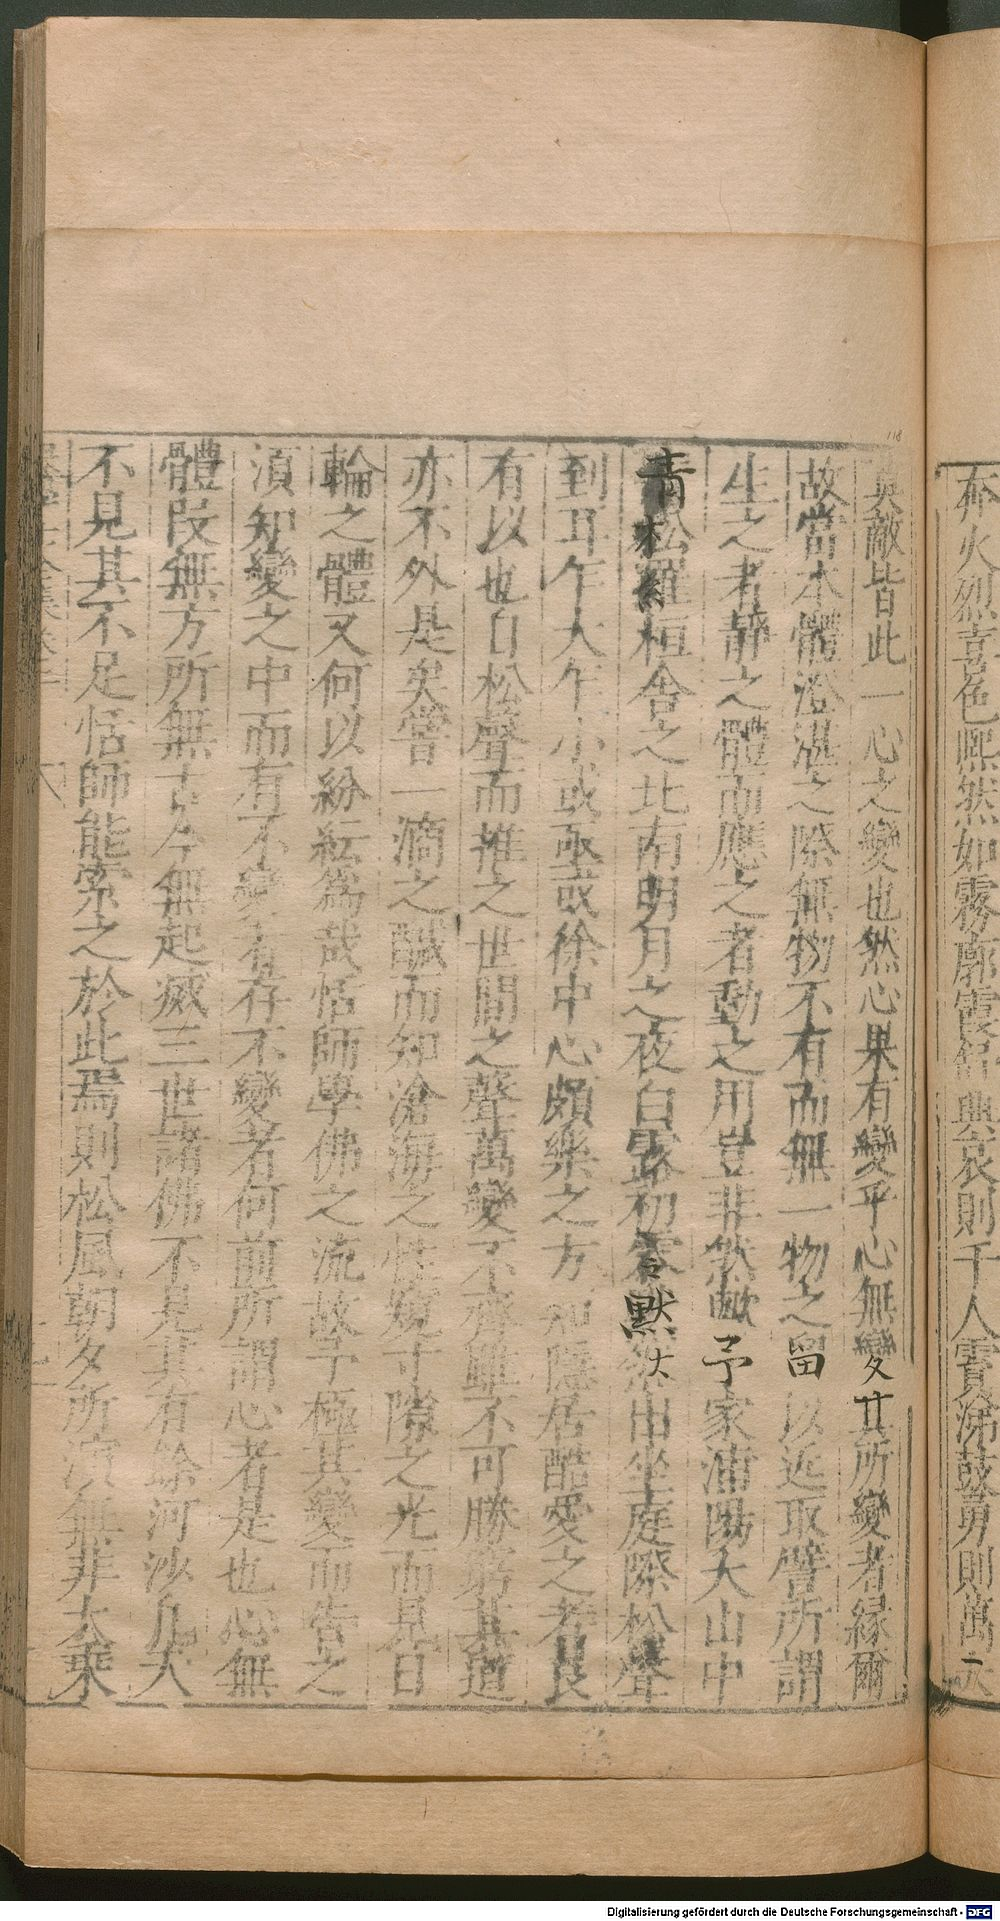 奔火烈喜色熈然如霧廓霞舒興哀則千人賈沸鼓勇則萬
莫敵皆此一心之變也然心果有變乎心無變其所變者緣爾
故當本體澄湛之際無物不有而無一物之留以近取譬所謂
生之者靜之體而應之者動之用豈非然歟予家浦陽大山中
青松羅桓舍之北南明月之夜白露初零默出坐庭際松聲
到耳乍大乍小或亟或徐中心頗樂之方知隱居酷愛之者良
有以也自松聲而推之世間之聲萬變不齊雖不可勝窮其道
亦不外是矣嘗一滴之鹹而知滄海之性窺寸隙之光而見日
輪之體又何以紛紜爲哉恬師學佛之流故予極其變而告之
須知變之中而有不變者存不變者何前所謂心者是也心無
體段無方所無古今無起滅三世諸佛不見其有餘河沙凡夫
不見其不足恬師能索之於此焉則松風朝夕所演無非大乘
118
Digitalisierung gefördert durch die Deutsche Forschungsgemeinschaft - DFG